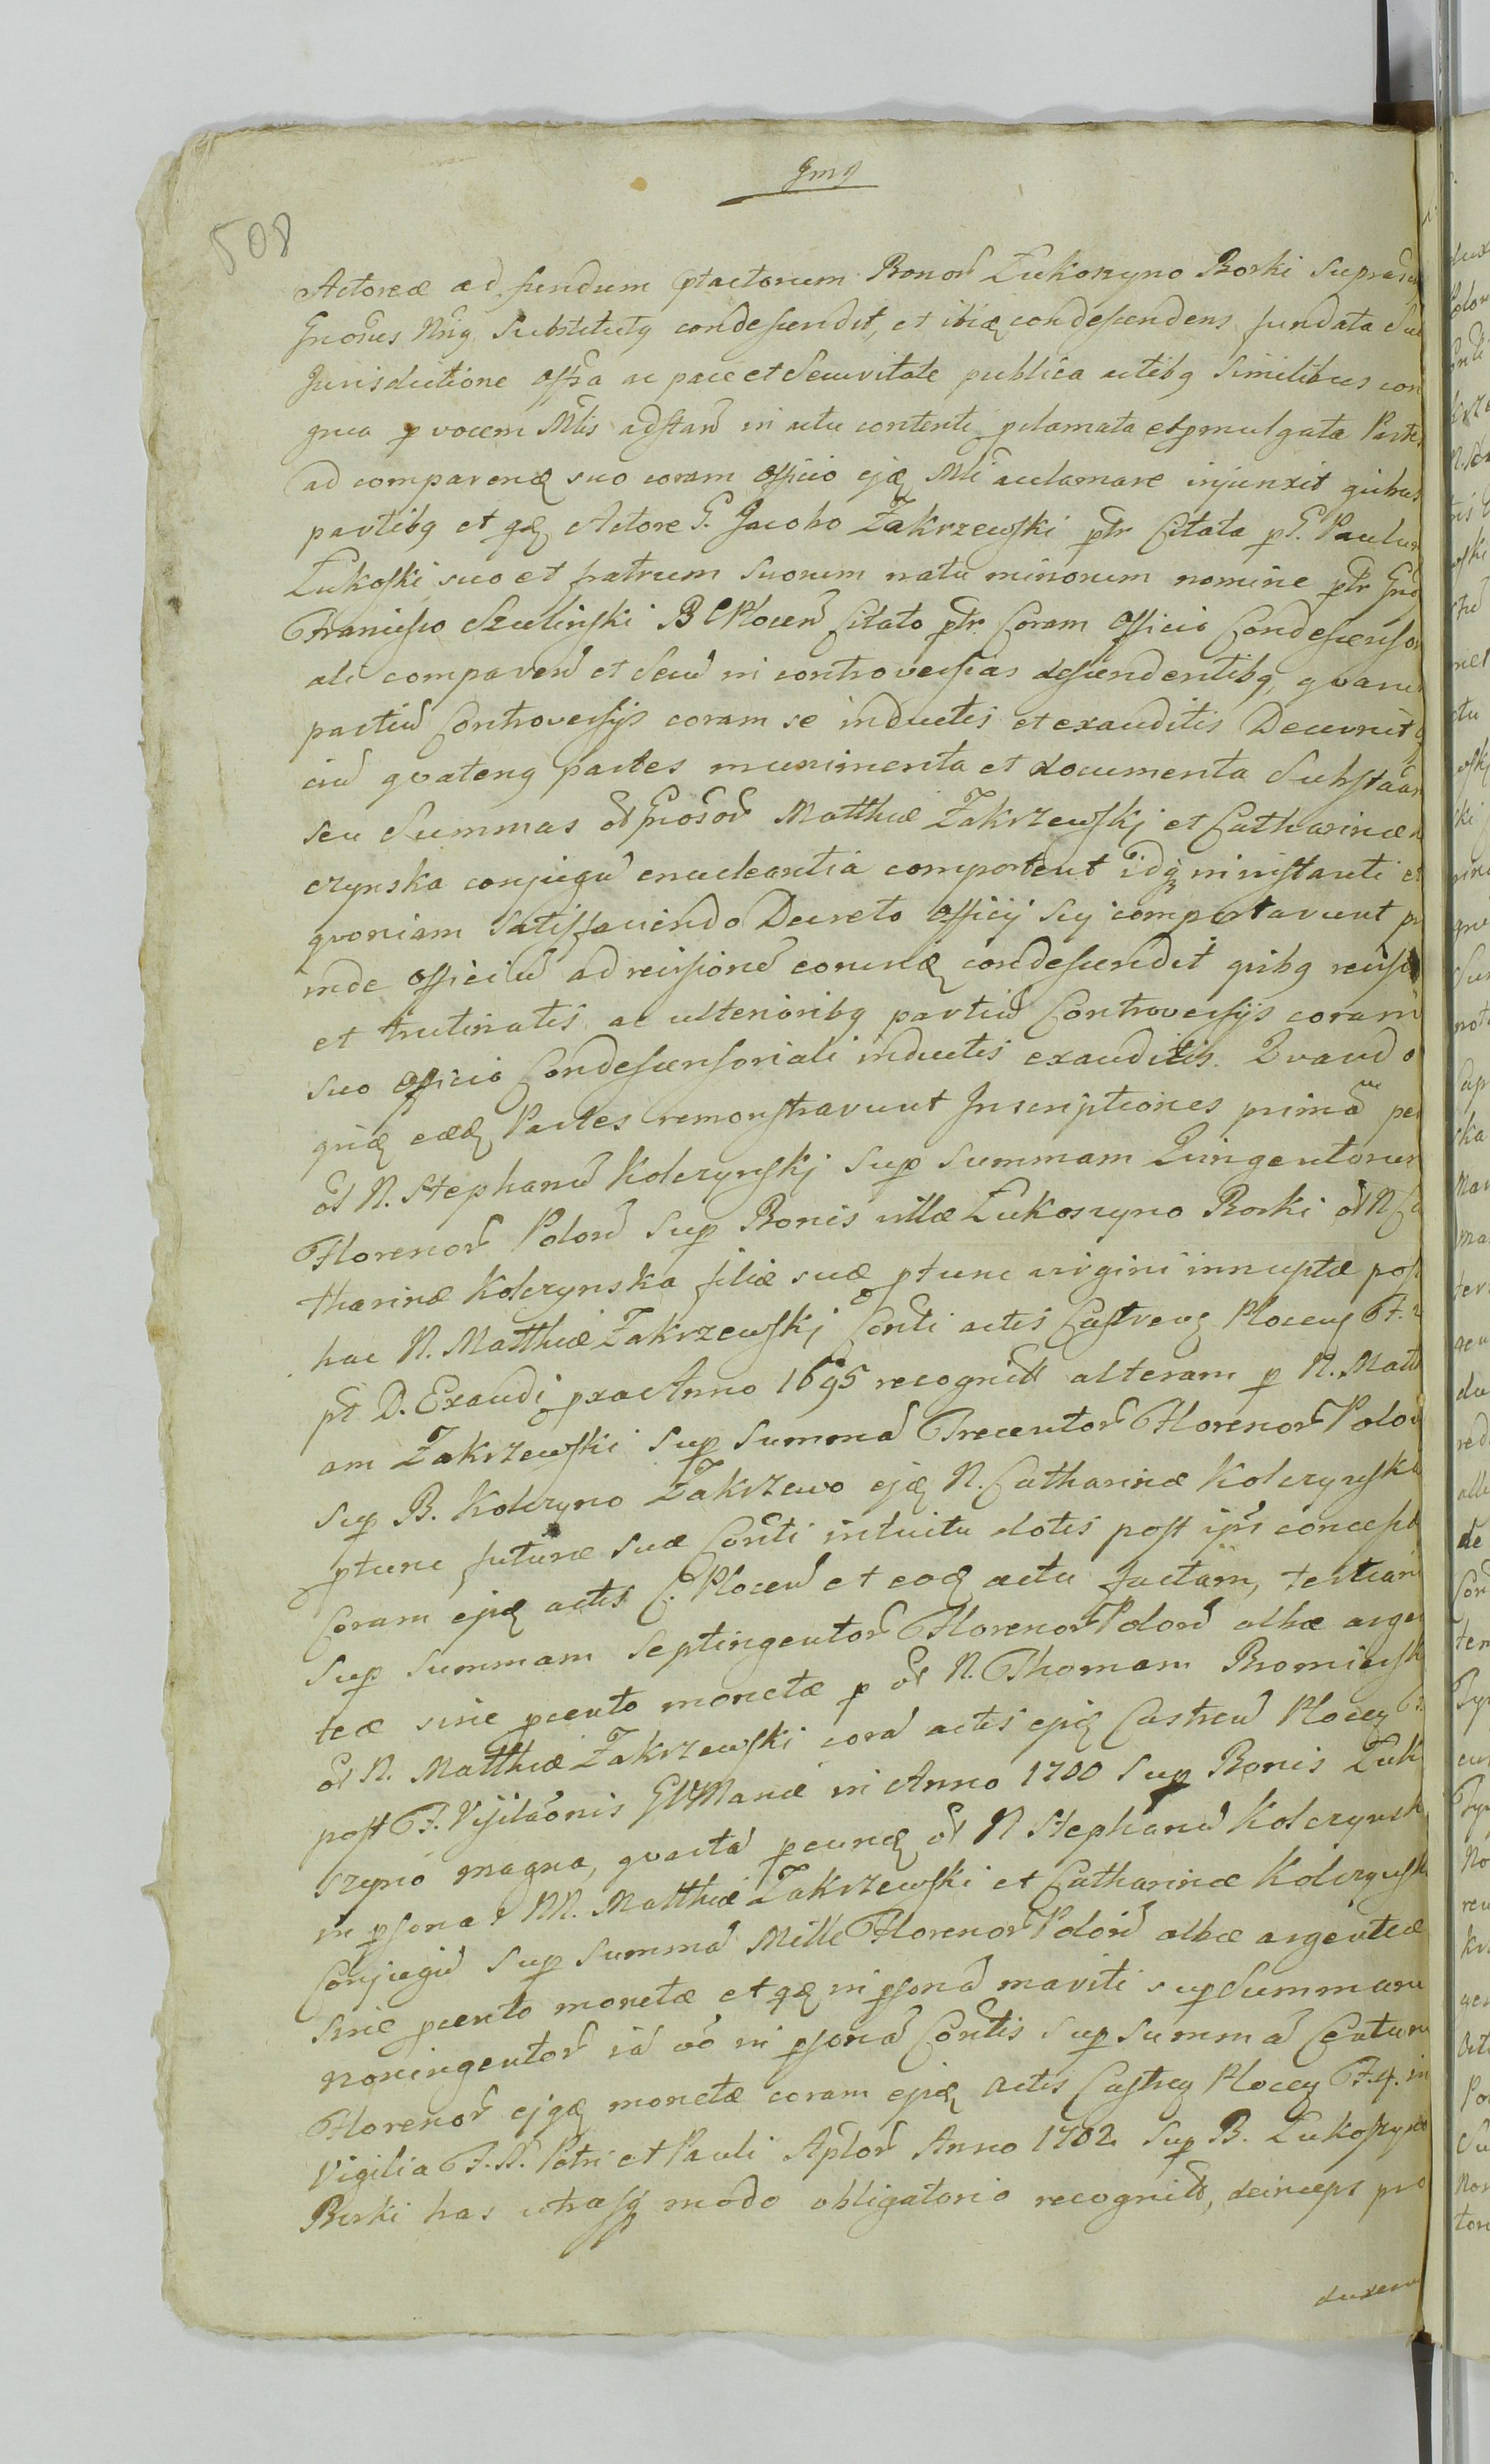 508
Actoreæ ad fundum ptactorum Bonor̃ Łukoszyno Borki supra
Gnosus Mrg Substitutg condescendit, et ibiq condescendens fundata Su
Jurisdictione Offsa ac pace et Securitate publica actibg Similibus con
grua p vocem Mlis adstañ in actu contenti pclamata et pmulgata Partes
ad comparenđ suo coram officio ejđ Mli acclamare injunxit quibus
partibg et qđ Actore G. Jacobo Zakrzewski ptr Citata p G. Paulum
Łukoski suo et fratrum suorum natu minorum nomine ptr Gnđ
Francisco Szeliński B C Plocen̄ Citato ptr Coram Officio Condescenso
ali comparen̄ et Secū in controversias descendentibg, qvarum
partiū Controversijs coram se inductis et exauditis Decernit
ciū qvateng partes munimenta et documenta Substaan
seu Summas ol̃ Gnosor̃ Matthiæ Zakrzewskj et Catharinæ
czynska conjugū enucleantia comportent idq in instanti et
qvoniam Satisfaciendo Decreto Officij sui comportavunt p
inde Officiū ad revisionē eorunđ condescendit quibg revisis
et trutinatis ac ulterioribg partiū Controversijs coram
suo Officio Condescensoriali inductis exauditis. Qvando
quiđ eæđ Partes remonstravunt Inscriptiones primā per
ol̃ N. Stephanū Kolczynskj Sup Summam Quingentorum
Florenor̃ Polon̄ Sup Bonis villæ Łukoszyno Borki ol̃ N Ca
tharinæ Kolczynska filiæ suæ ptunc virgini innuptæ post
hac N. Matthiæ Zakrzewskj Conti actis Castreng Ploceng F.
pt D. Exaudi pxa Anno 1695 recognitā alteram p N. Matthi
am Zakrzewski Sup Summā Trecentor̃ Florenor̃ Polon
Sup B. Kolczyno Zakrzewo ejđ N. Catharinæ Kolczynska
ptunc futuræ suæ Conti intuitu dotis post ipm concept
Coram ejđ actis C. Plocen̄ et eođ actu factam, tertiam
Sup Summam Septingentor̃ Florenor̃ Polon̄ albæ argen
teæ sine pcento monetæ p ol̃ N. Thomam Bromiersk
ol̃ N. Matthiæ Zakrzewski corā actis ejđ Castren̄ Ploceng F.
post F. Visitaõnis GVMariæ in Anno 1700 Sup Bonis Łuk
szyno magna, qvartā peundđ ol̃ N Stephanū Kolczynsk
in psona NN. Matthiæ Zakrzewski et Catharinæ Kolczynsk
Conjugū Sup Summā Mille Florenor̃ Polon̄ albæ argenteæ
sine pcento monetæ et qđ in psonā mariti sup Summam
noningentor̃ in psonā Contis Sup Summā Centum
Florenor̃ ejqđ monetæ coram ejđ Actis Castreng Ploceng F.4. in
Vigilia F.S. Petri et Pauli Aplor̃ Anno 1702 Sup B. Łukoszyno
Borki has utrasq modo obligatorio recognitā, deinceps pro
duxerunt